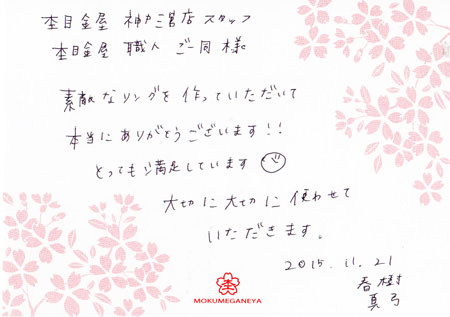 杢目金屋 神戸三宮店 スタッフ
杢目金屋 職人 ご一同 様。
素敵なリングを 作っていただいて
本当に ありがとうございます!!
とっても 満足しています
大切に 大切に 使わせて
いただきます。
2015.11.21
春樹
真弓
MOKUMEGANEYA